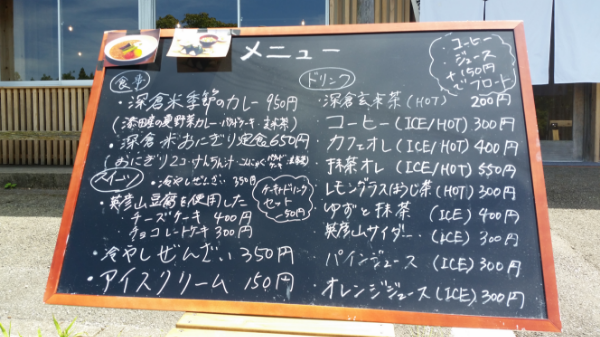 メニュー
食事
・深倉米季節のカレー 950円
(添田産の夏野菜カレー・パウンドケーキ・抹茶)
・深倉米おにぎり定食 650円
(おにぎり2コ・
スイーツ
・冷やしぜんざい 350円
・英彦山豆腐を使用した
チーズケーキ 400円
チョコレートケーキ 300円
ケーキ+ドリンク
セット
-50円
・冷やしぜんざい 350円
・アイスクリーム 150円
ドリンク
・コーヒー
・ジュース
+150円
でフロート
・深倉玄米茶 (HOT) 200円
コーヒー (ICE/HOT) 300円
カフェオレ (ICE/HOT) 400円
抹茶オレ (ICE/HOT) 550円
レモングラスほうじ茶 (HOT) 300円
ゆずと抹茶 (ICE) 400円
英彦山サイダー (ICE) 300円
パインジュース (ICE) 300円
・オレンジジュース (ICE) 300円